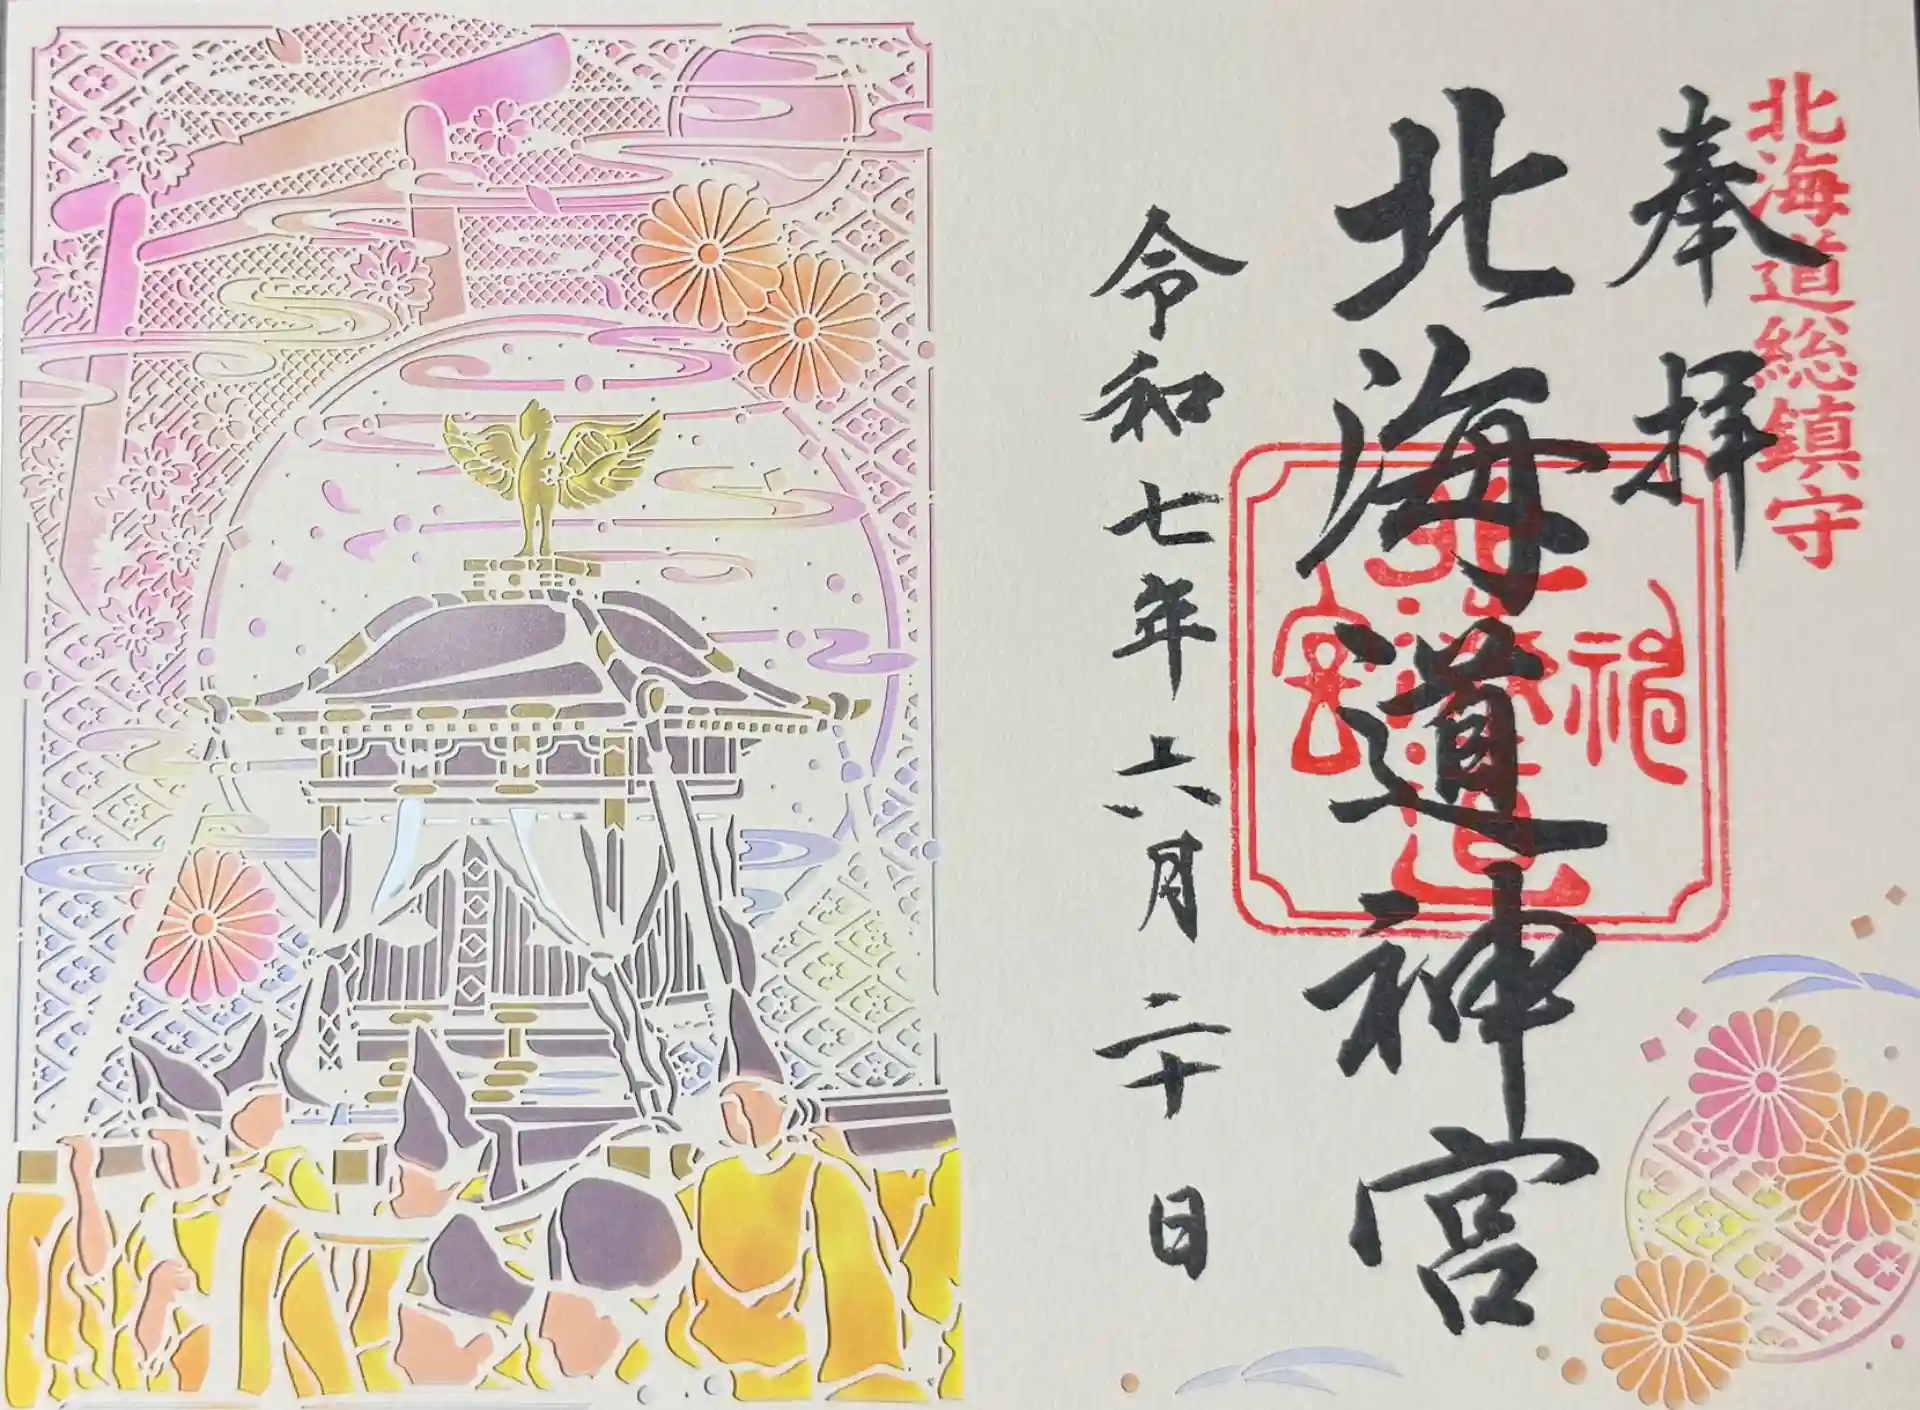 北海道総鎮守
奉拝
北海道神宮
北海道神宮
令和七年六月二十日